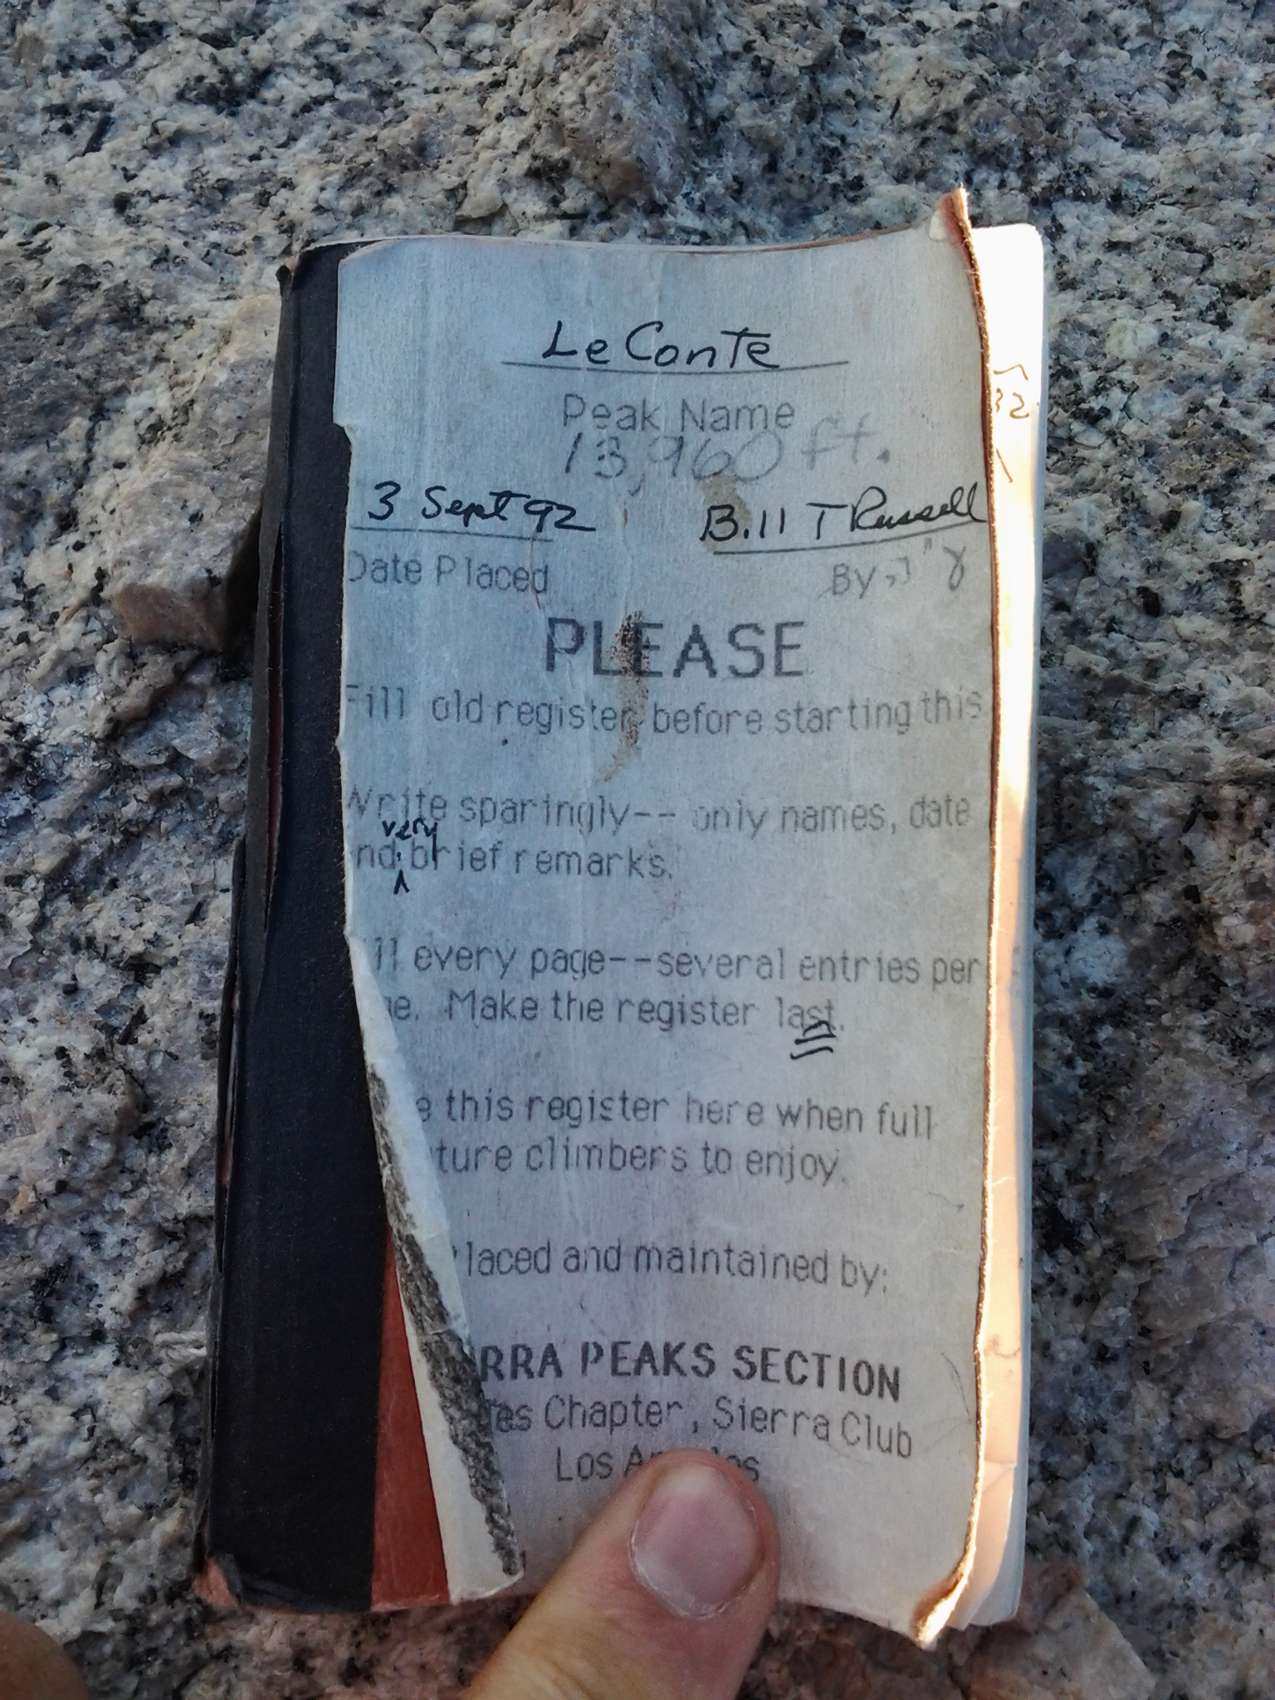 Le Conte
Peak Name
13,960 ft.
3 Sept 92 Bill T Russell
Date Placed By
PLEASE
Fill old register before starting this
Write sparingly-- only names, date
very
nd brief remarks.
ill every page--several entries per
e. Make the register last.
e this register here when full
ture climbers to enjoy.
laced and maintained by:
RRA PEAKS SECTION
es Chapter, Sierra Club
Los
32